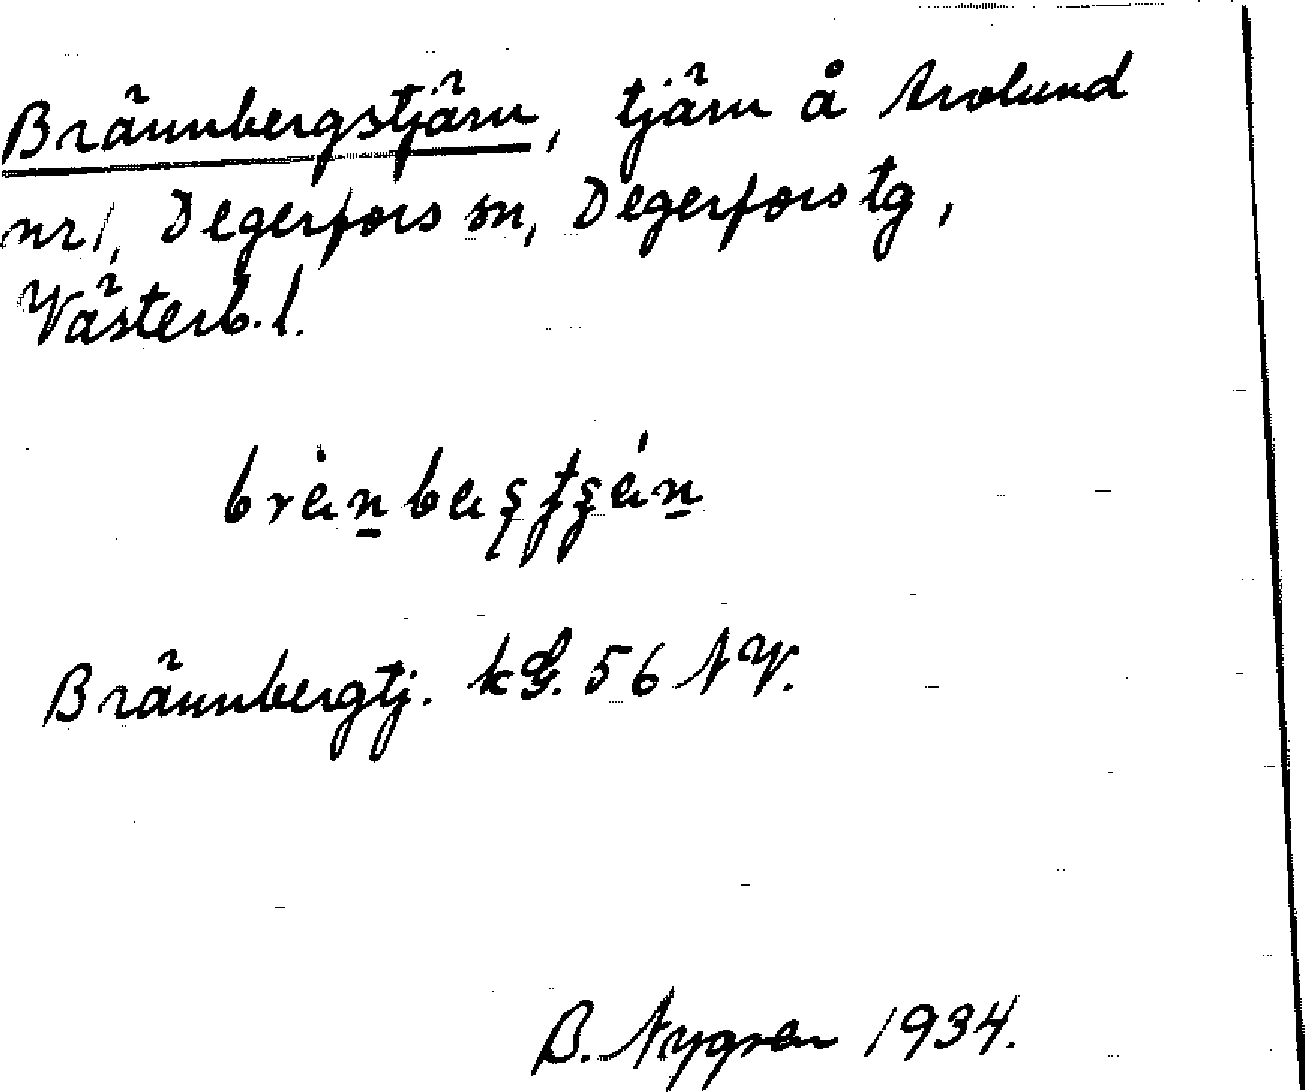 Brännbergstjärn, tjärn å Arvlund
nr 1, Degerfors sn, Degerfors tg,
Västerb. l.
Brännbergtj. kG. 56 NV.
B. Nygren 1934.